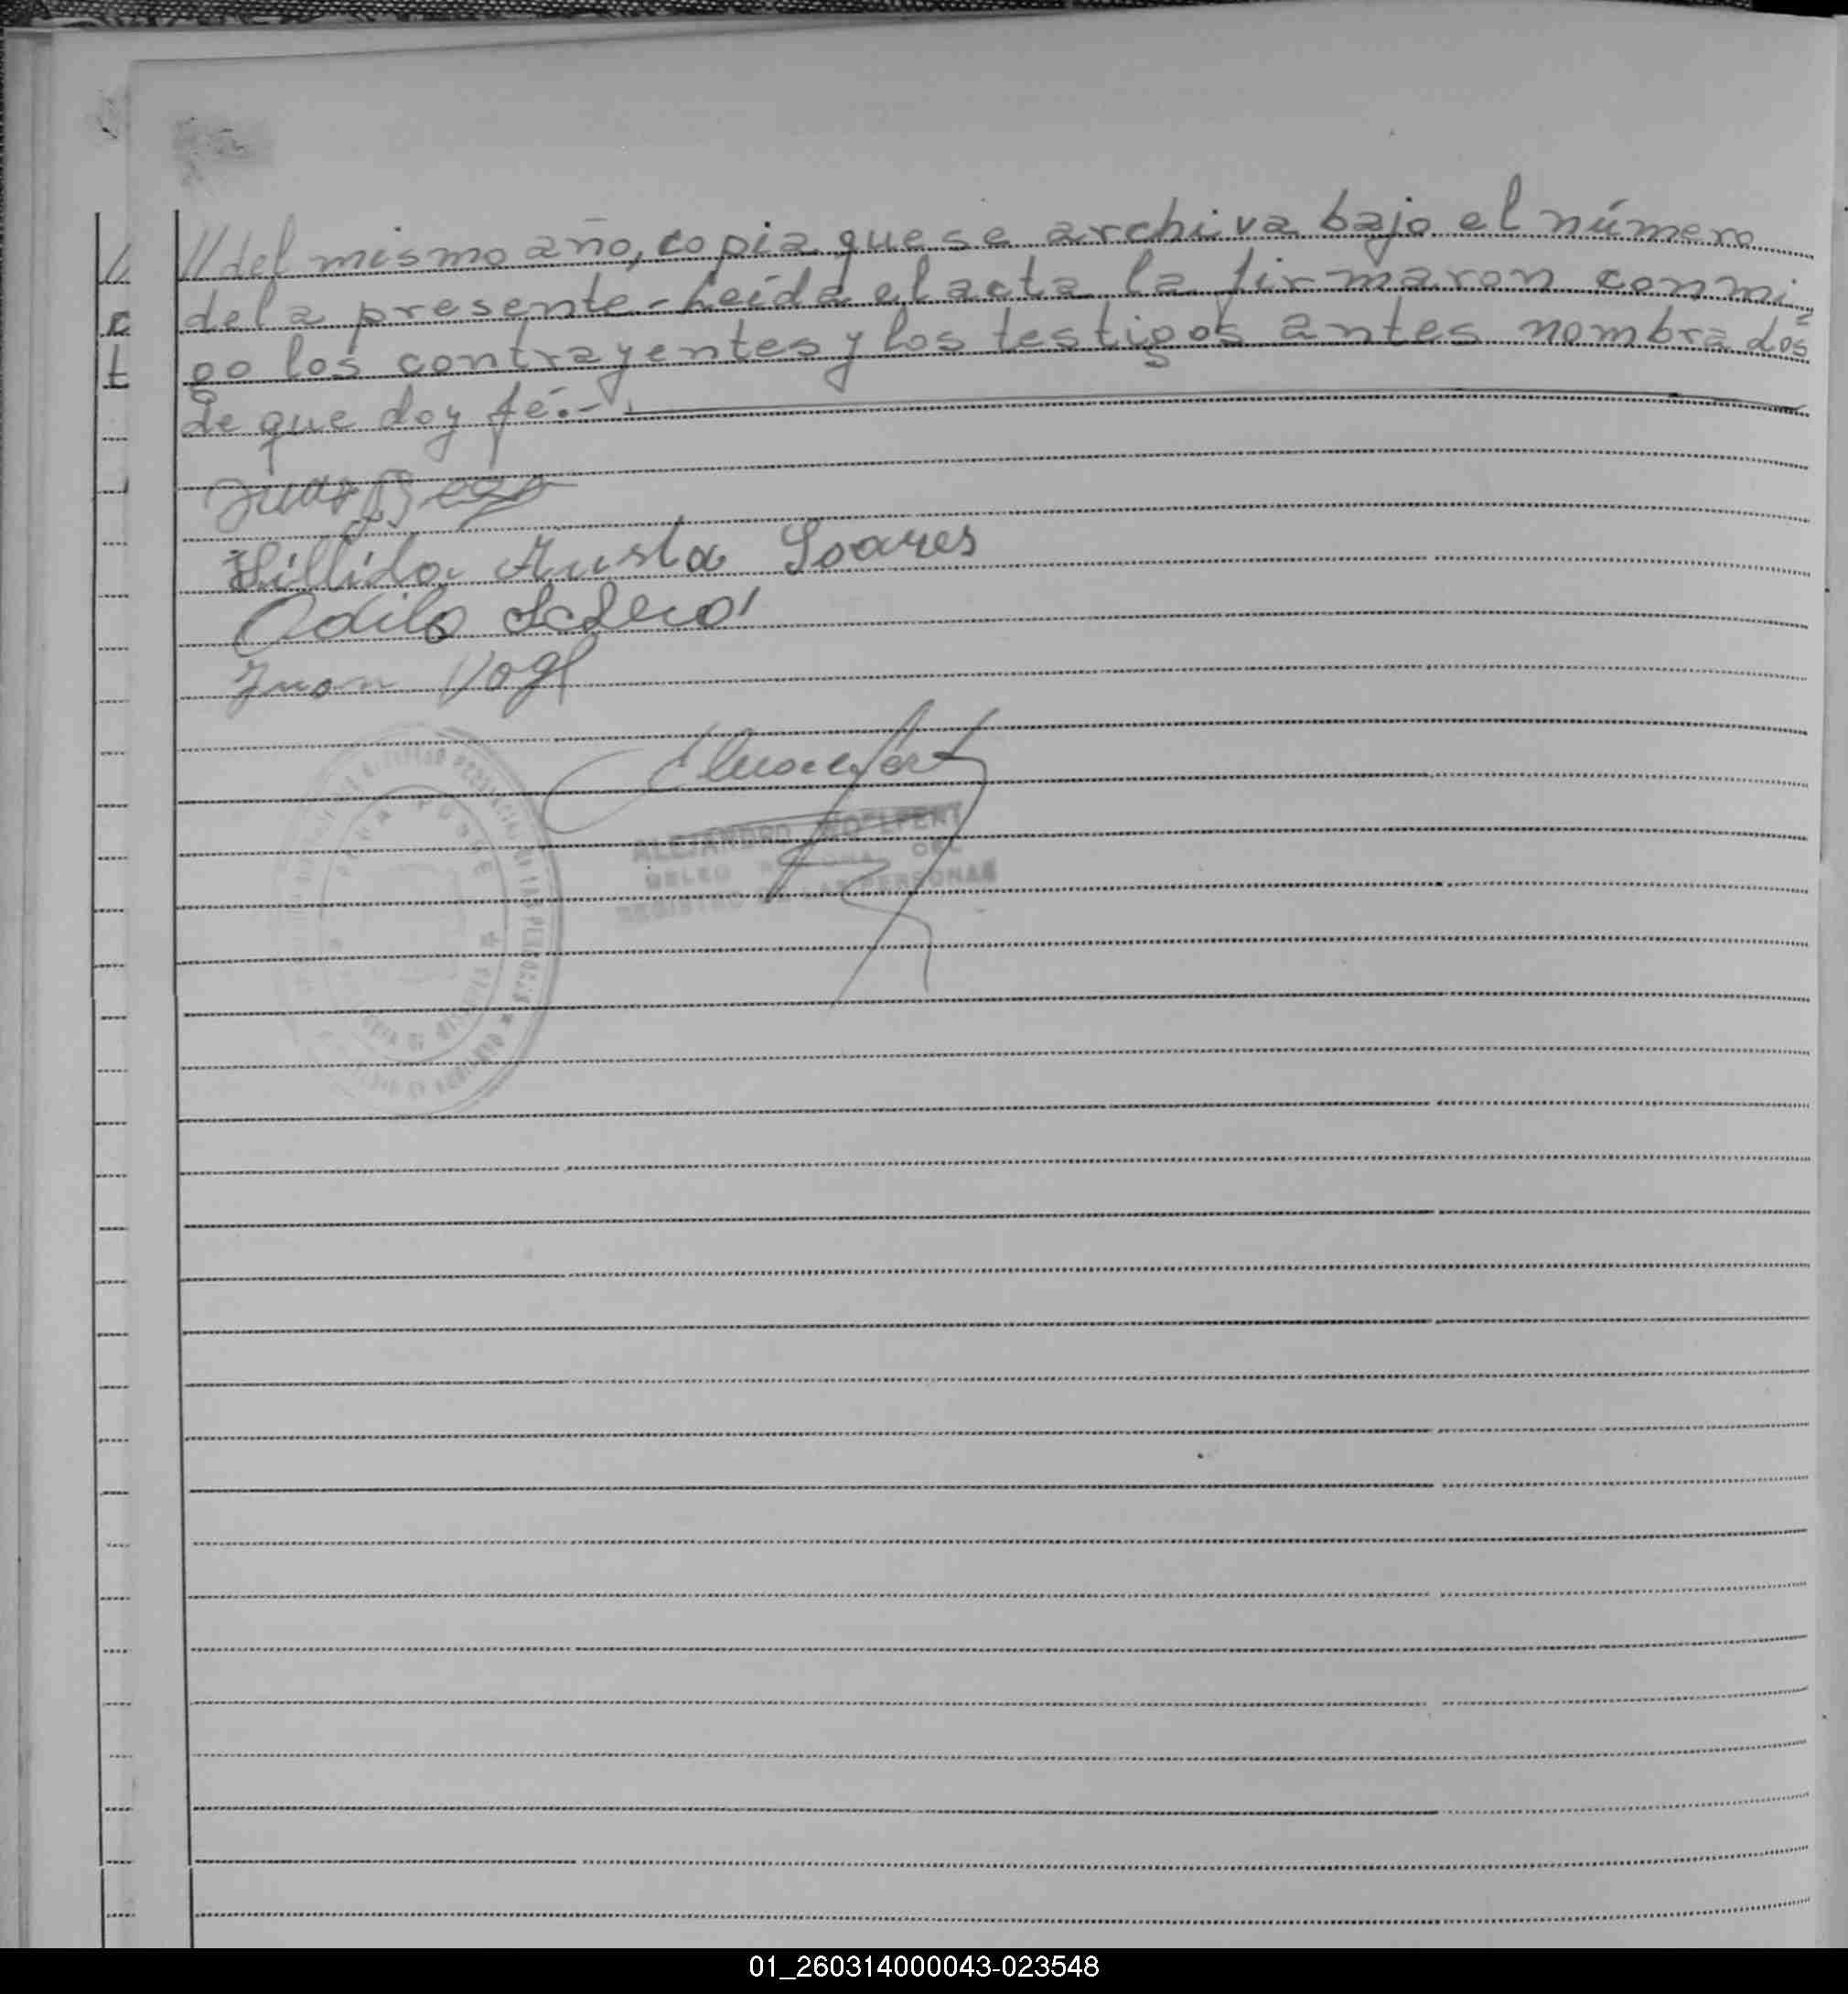 //del mismo año, copia que se archiva bajo el número
de la presente-Leída el acta la firmaron conmi=
go los contrayentes y los testigos antes nombrados
de que doy fé.-
Juan
Hillida Justa Soares
Odilo
Juan Vogl
ALEJANDRO WOELFERT
DEL
REGISTRO DE LAS PERSONAS
01_260314000043-023548